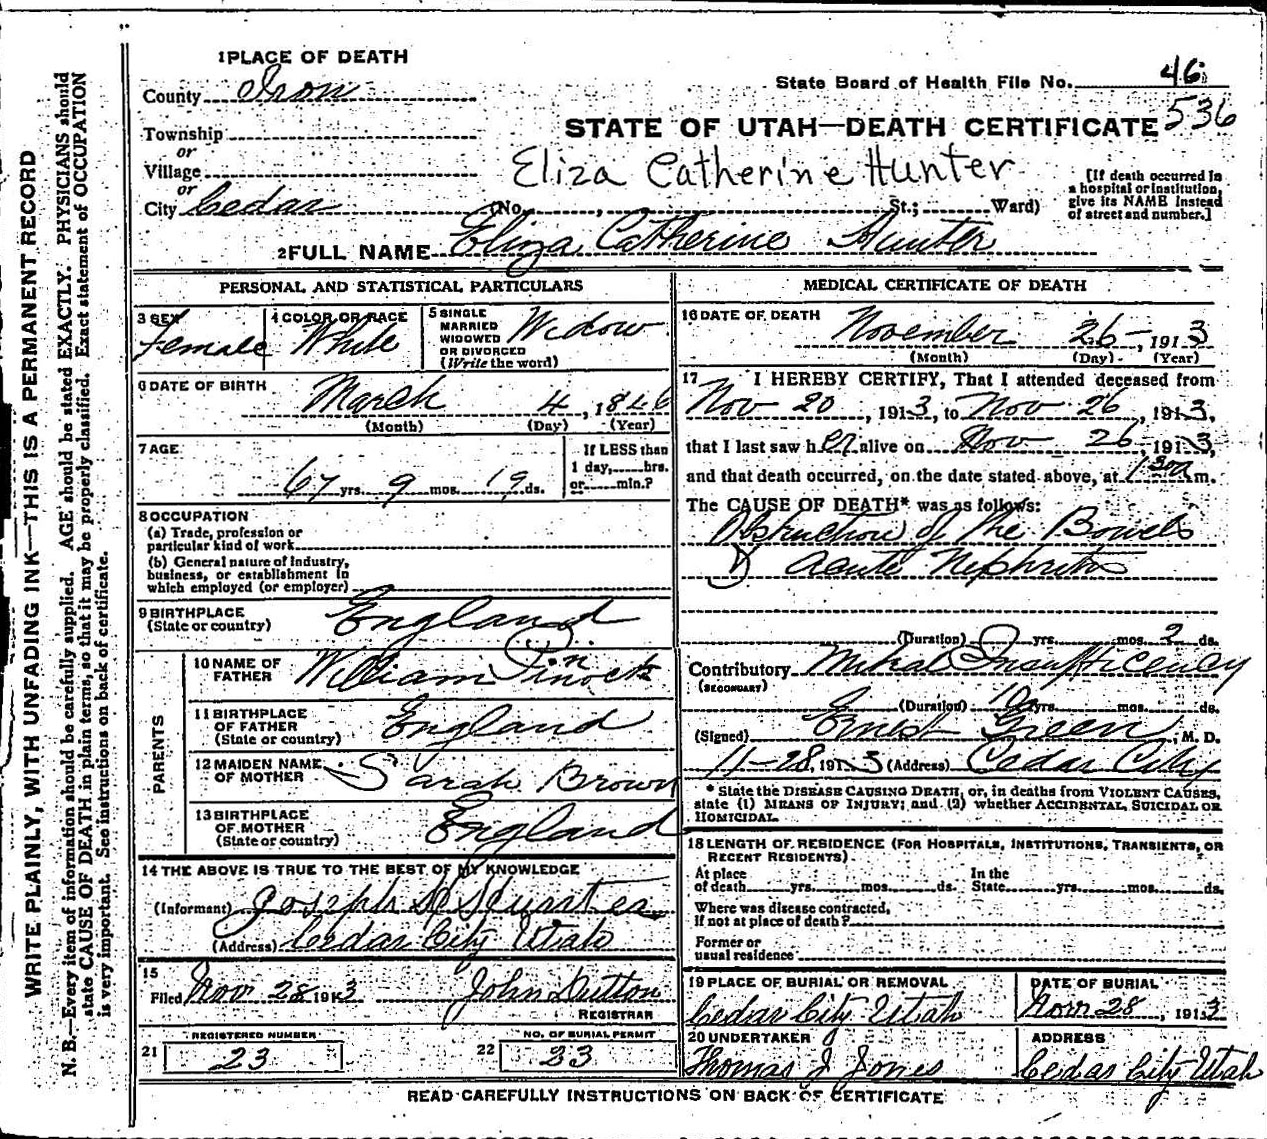 1 PLACE OF DEATH
County Iron
State Board of Health File No. 46
536
Township
or
Village
or
City Cedar
STATE OF UTAH—DEATH CERTIFICATE
Eliza Catherine Hunter
(No. , St.; Ward)
[If death occurred in a hospital or institution, give its NAME instead of street and number.]
2 FULL NAME Eliza Catherine Hunter
PERSONAL AND STATISTICAL PARTICULARS
3 SEX Female
4 COLOR OR RACE White
5 SINGLE MARRIED WIDOWED OR DIVORCED (Write the word) Widow
6 DATE OF BIRTH March 4, 1846
(Month) (Day) (Year)
7 AGE 67 yrs. 9 mos. 19 ds.
If LESS than 1 day, hrs. or min.?
8 OCCUPATION
(a) Trade, profession or particular kind of work
(b) General nature of industry, business, or establishment in which employed (or employer)
9 BIRTHPLACE (State or country) England
PARENTS
10 NAME OF FATHER William Pinnock
11 BIRTHPLACE OF FATHER (State or country) England
12 MAIDEN NAME OF MOTHER Sarah Brown
13 BIRTHPLACE OF MOTHER (State or country) England
14 THE ABOVE IS TRUE TO THE BEST OF MY KNOWLEDGE
(Informant) Joseph S Hunter
(Address) Cedar City Utah
15
Filed Nov 28 1913 John Dutton
REGISTRAR
REGISTERED NUMBER
21 23
NO. OF BURIAL PERMIT
22 23
MEDICAL CERTIFICATE OF DEATH
16 DATE OF DEATH November 26, 1913
(Month) (Day) (Year)
17 I HEREBY CERTIFY, That I attended deceased from
Nov 20, 1913, to Nov 26, 1913,
that I last saw her alive on Nov 26, 1913,
and that death occurred, on the date stated above, at m.
The CAUSE OF DEATH* was as follows:
Obstruction of the Bowels
Acute Nephritis
(Duration) yrs. mos. 2 ds.
Contributory Mitral Insufficency
(SECONDARY)
(Duration) 10 yrs. mos. ds.
(Signed) Ernest Green, M. D.
11-28, 1913 (Address) Cedar City
* State the DISEASE CAUSING DEATH, or, in deaths from VIOLENT CAUSES, state (1) MEANS OF INJURY; and (2) whether ACCIDENTAL, SUICIDAL OR HOMICIDAL.
18 LENGTH OF RESIDENCE (FOR HOSPITALS, INSTITUTIONS, TRANSIENTS, OR RECENT RESIDENTS)
At place of death yrs. mos. ds. In the State yrs. mos. ds.
Where was disease contracted, If not at place of death?
Former or usual residence
19 PLACE OF BURIAL OR REMOVAL Cedar City Utah
DATE OF BURIAL Nov 28, 1913
20 UNDERTAKER Thomas J Jones
ADDRESS Cedar City Utah
READ CAREFULLY INSTRUCTIONS ON BACK OF CERTIFICATE
WRITE PLAINLY, WITH UNFADING INK—THIS IS A PERMANENT RECORD
N. B.—Every item of information should be carefully supplied. AGE should be stated EXACTLY. PHYSICIANS should
state CAUSE OF DEATH in plain terms, so that it may be properly classified. Exact statement of OCCUPATION
is very important. See instructions on back of certificate.